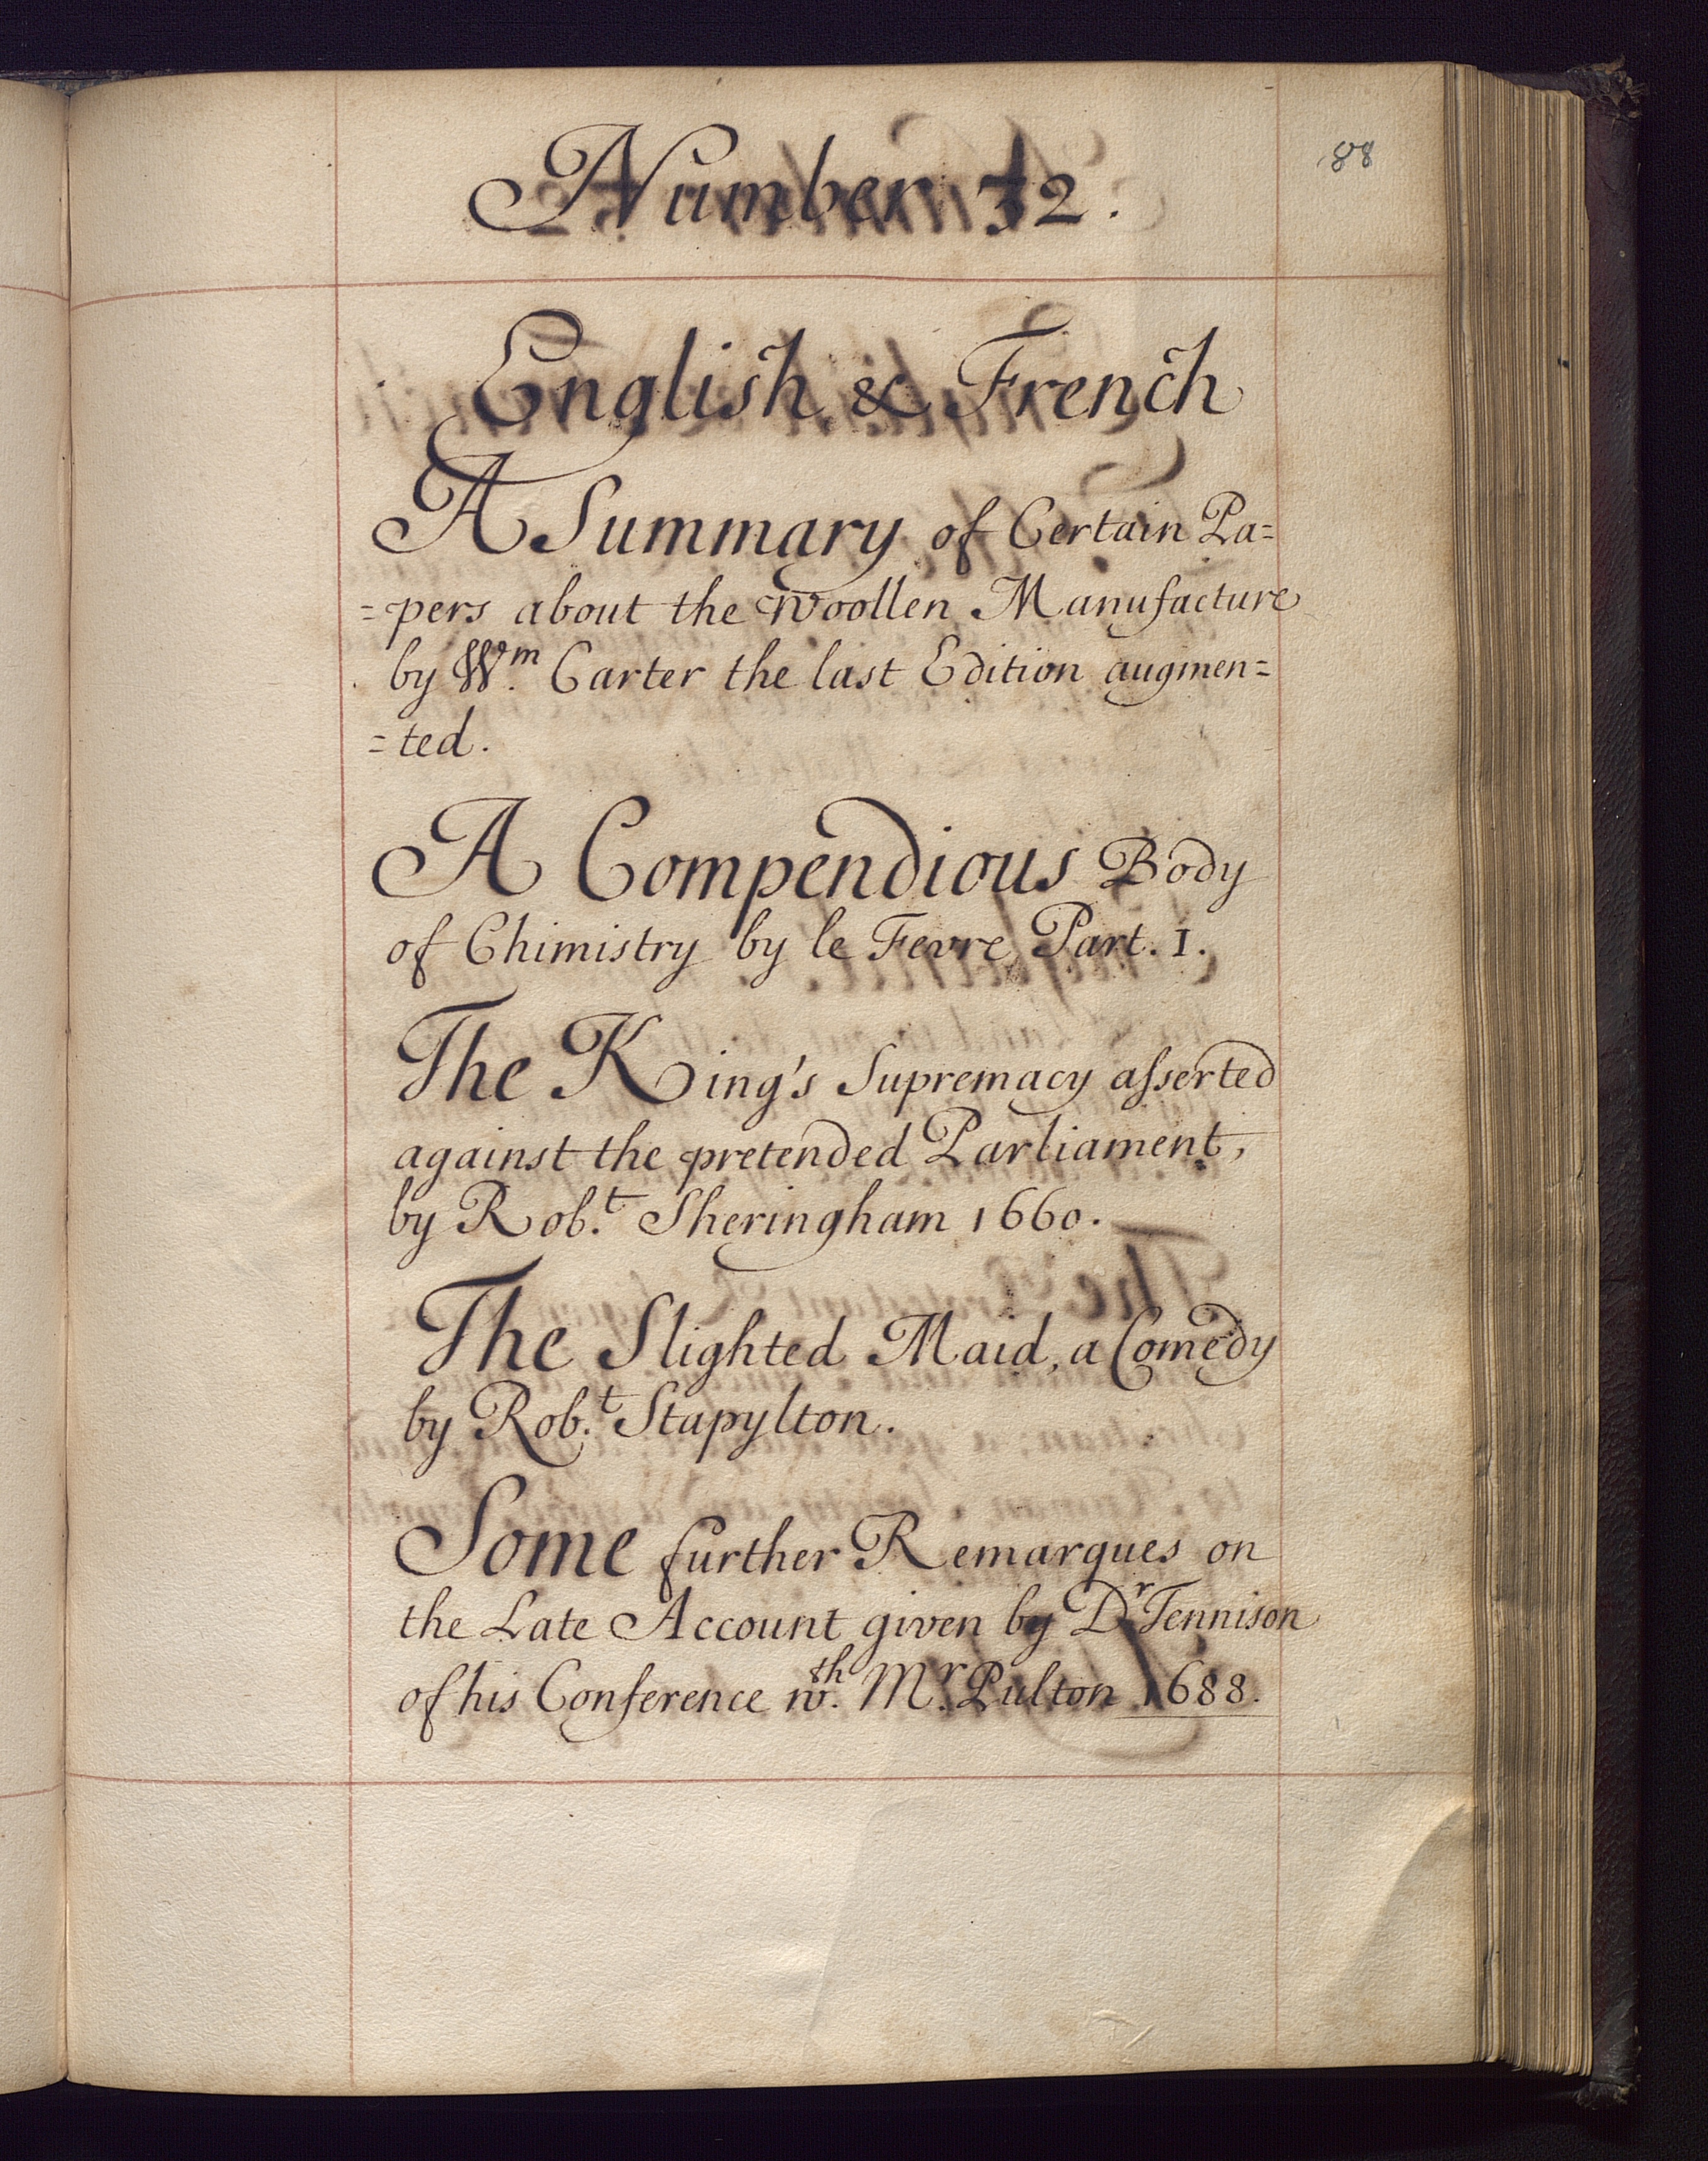 88
Number 32.
English & French
A Summary of Certain Pa=
=pers about the Woollen Manufacture
by Wm. Carter the last Edition augmen=
=ted.
A Compendious Body
of Chimistry by le Fevre Part. 1.
The King's Supremacy aſserted
against the pretended Parliament,
by Rob.t Sheringham 1660.
The Slighted Maid, a Comedy
by Rob.t Stapylton.
Some further Remarques on
the Late Account given by Dr Tennison
of his Conference wth. Mr. Pulton 1688.